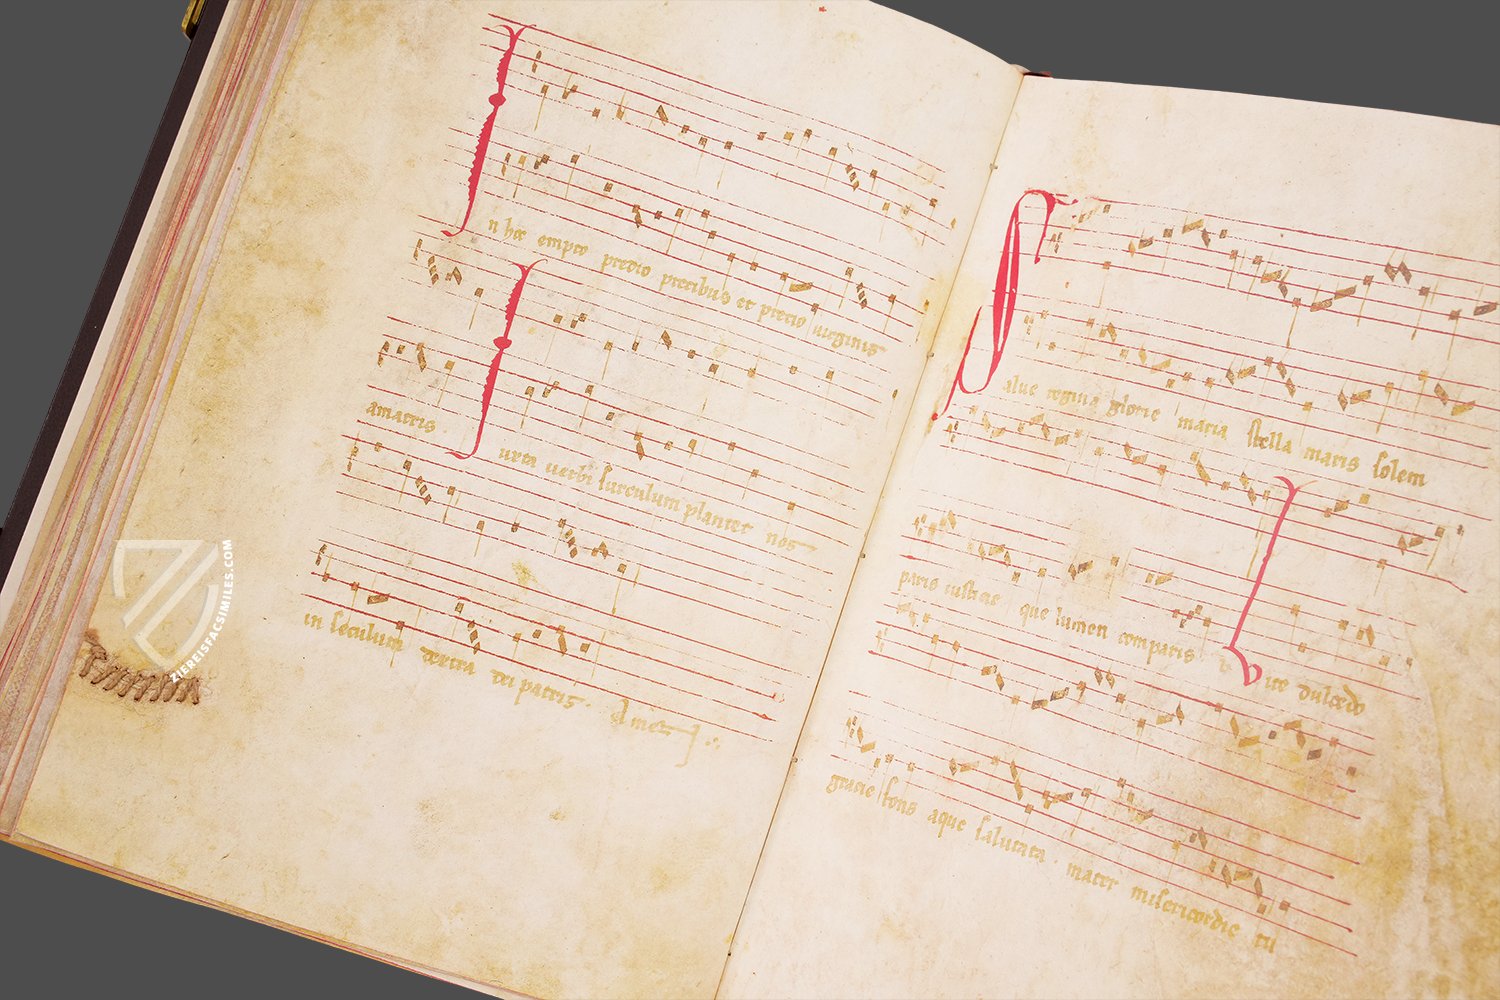 In hoc empto predio precibus et precio uirginis
amatris. Iuxta uerbi surculum plantet nos
in seculum dextra dei patris. Amen
Salue regina glorie maria stella maris solem
paris iusticie que lumen comparis Vite dulcedo
gracie fons aque saluata. mater misericordie tu
ZIEREISFACSIMILES.COM